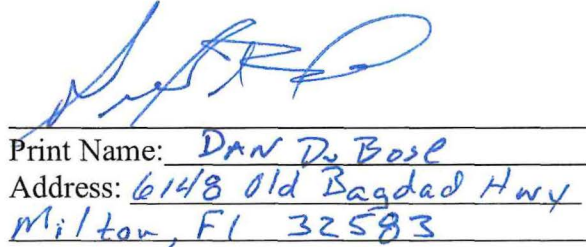 Print Name: DAN DuBose
Address: 6148 Old Bagdad Hwy
Milton, Fl 32583